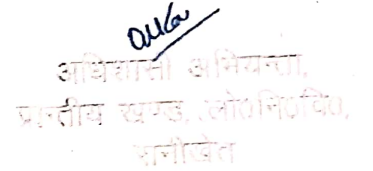 अधिशासी अभियन्ता,
प्रान्तीय खण्ड, लो०नि०वि०,
रानीखेत